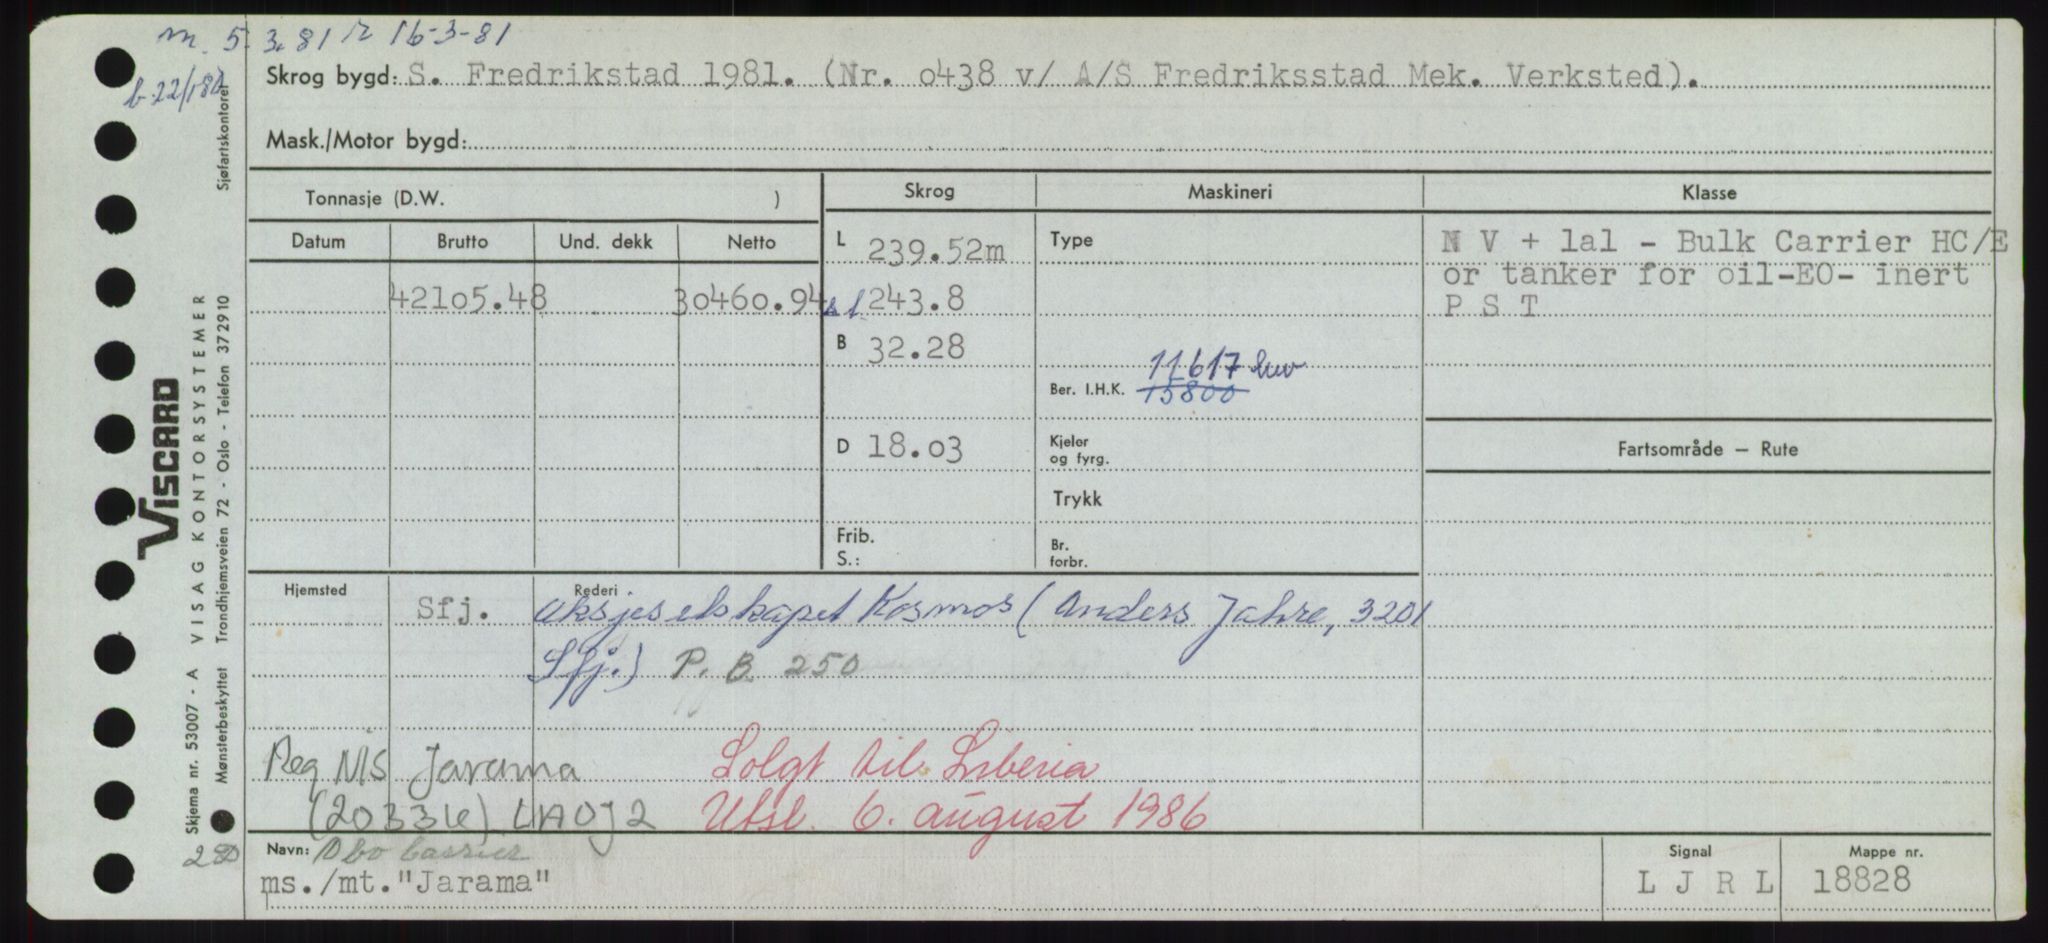 m. 5. 3. 81 r 16-3-81
b 22/1 80
Skrog bygd: S. Fredrikstad 1981. (Nr. o438 v/ A/S Fredriksstad Mek. Verksted).
Mask./Motor bygd:
Tonnasje (D.W. )
Skrog Maskineri Klasse
Datum Brutto Und. dekk Netto
42105.48 30460.94
L 239.52m
s l 243.8
B 32.28
D 18.03
Frib.
S.:
Type
11617
Ber. I.H.K. 15800
Kjeler
og fyrg.
Trykk
Br.
forbr.
N V + 1a1 - Bulk Carrier HC/E
or tanker for oil-EO- inert
P S T
Fartsområde — Rute
Hjemsted Rederi
Sfj. Aksjeselskapet Kosmos (Anders Jahre, 3201
Sfj.) P. B. 250
Reg NIS Jarama Solgt til Liberia
(20334) LAOJ2 Utsl. 6. august 1986
Navn: Obo carrier
ms./mt."Jarama"
Signal Mappe nr.
L J R L 18828
Sjøfartskontoret
VISCARD
VISAG KONTORSYSTEMER
Trondhjemsveien 72 - Oslo - Telefon 37 29 10
Skjema nr. 53007 - A
Mønsterbeskyttet